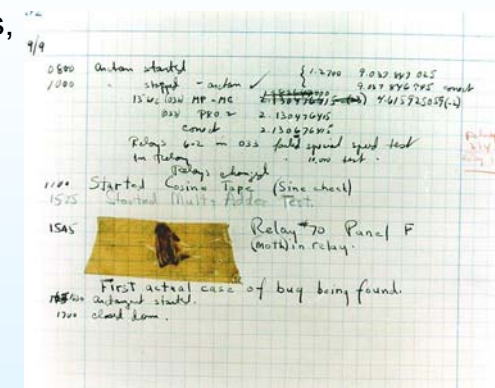 s,
9/9
0800 antan started { 1.2700 9.037 847 025
1000 " stopped - antan ✓ 9.037 846 995 conect
13"uc (032) MP - MC 2.130476415 (-3) 4.615925059(-2)
(033) PRO.2 2.130476415
conect 2.130676415
Relays 6-2 in 033 failed special speed test
in Relay " 10.000 test.
Relays changed
1100 Started Cosine Tape (Sine check)
1525 Started Mult+Adder Test.
1545 Relay #70 Panel F
(Moth) in relay.
First actual case of bug being found.
antangent started.
1700 closed down.